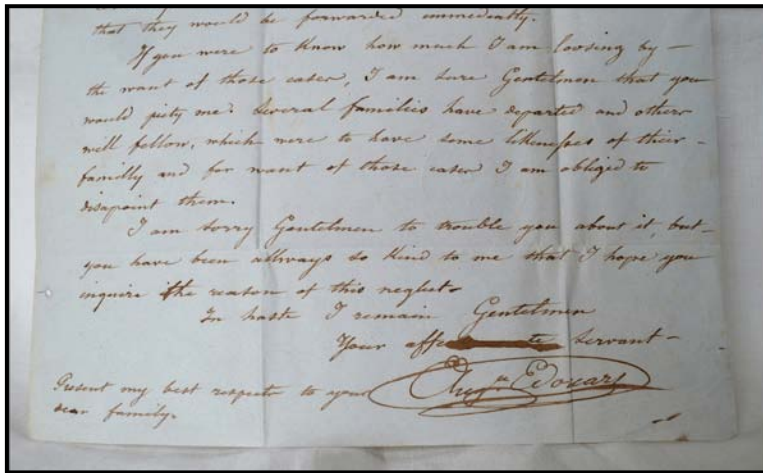 that they would be forwarded immediatly.
If you were to Know how much I am loosing by -
the want of those cases, I am sure Gentelmen that you
would piety me. Several families have departed and other
will fellow, which were to have some likenesses of their -
familly and for want of those cases I am obliged to
disapoint them.
I am sorry Gentelmen to trouble you about it, but -
you have been allways so Kind to me that I hope you
inquire the reason of this neglect.
In haste I remain Gentelmen
Your servant -
Augn Edouart
Present my best respects to your
dear family.